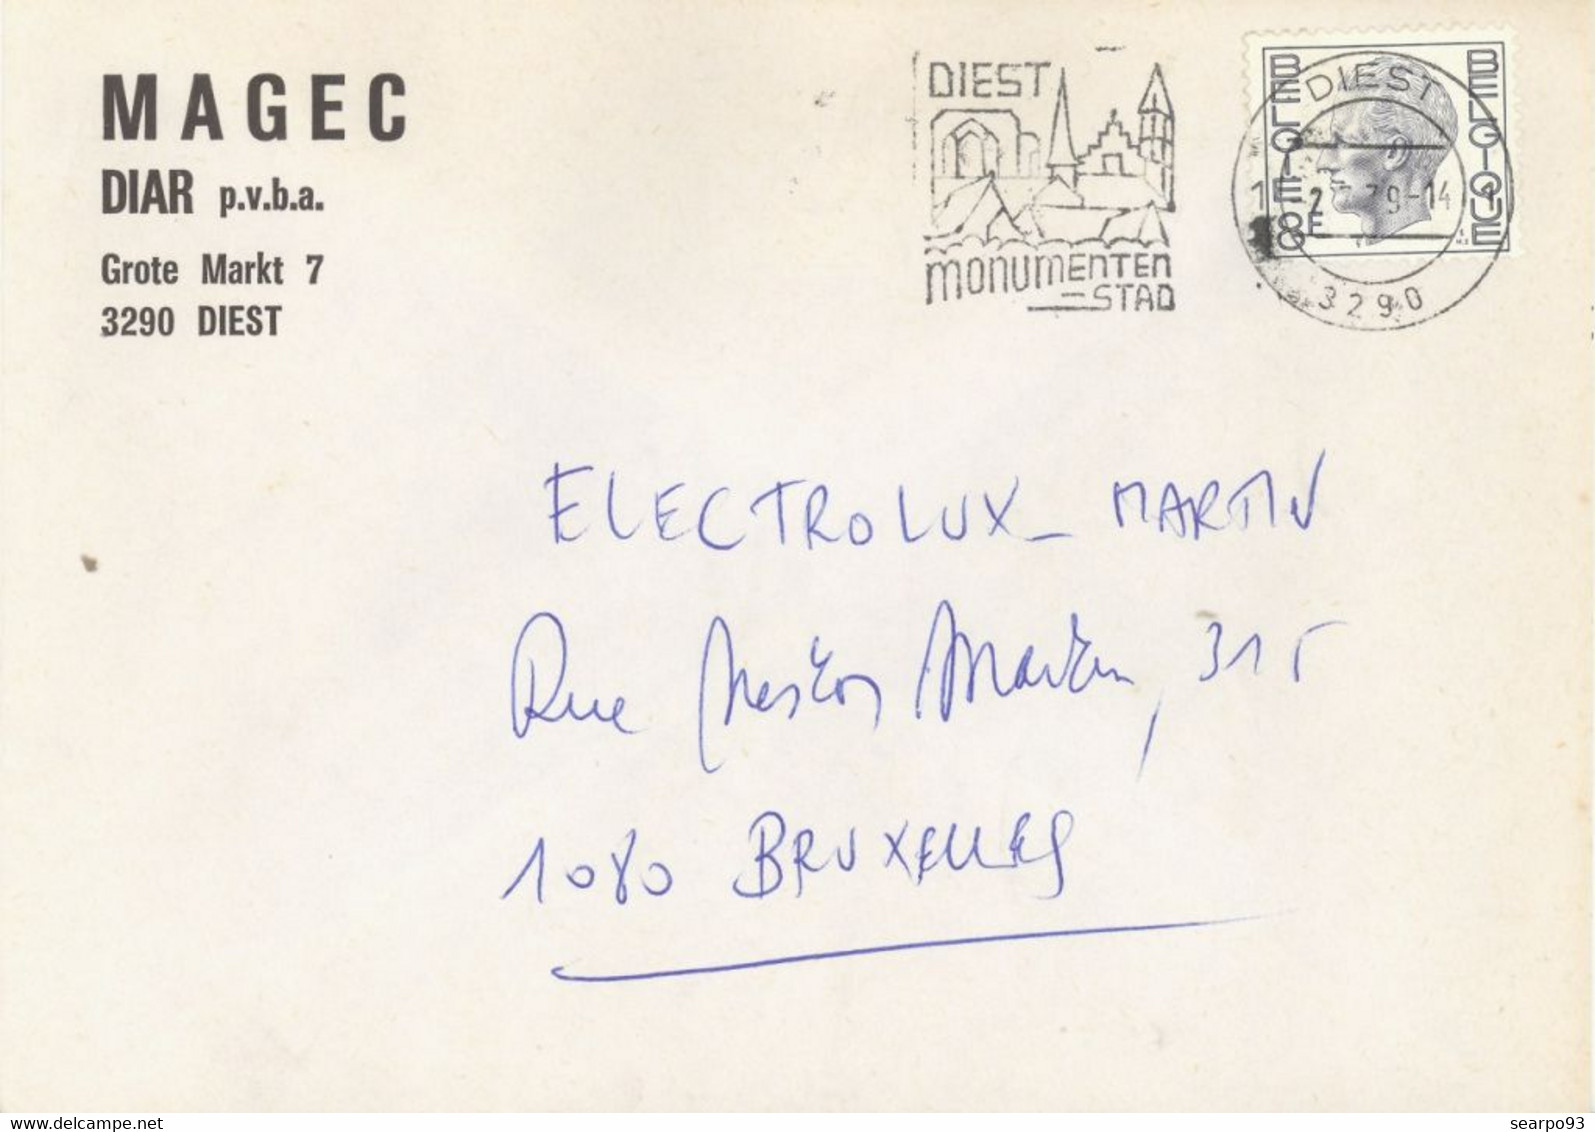 MAGEC
DIAR p.v.b.a.
Grote Markt 7
3290 DIEST
DIEST
MONUMENTEN
-STAD
BELGIE
8F
BELGIQUE
DIEST
79-14
3290
ELECTROLUX - MARTIN
Rue Nestor Martin, 315
1080 BRUXELLES
delcampe.net
searpo93